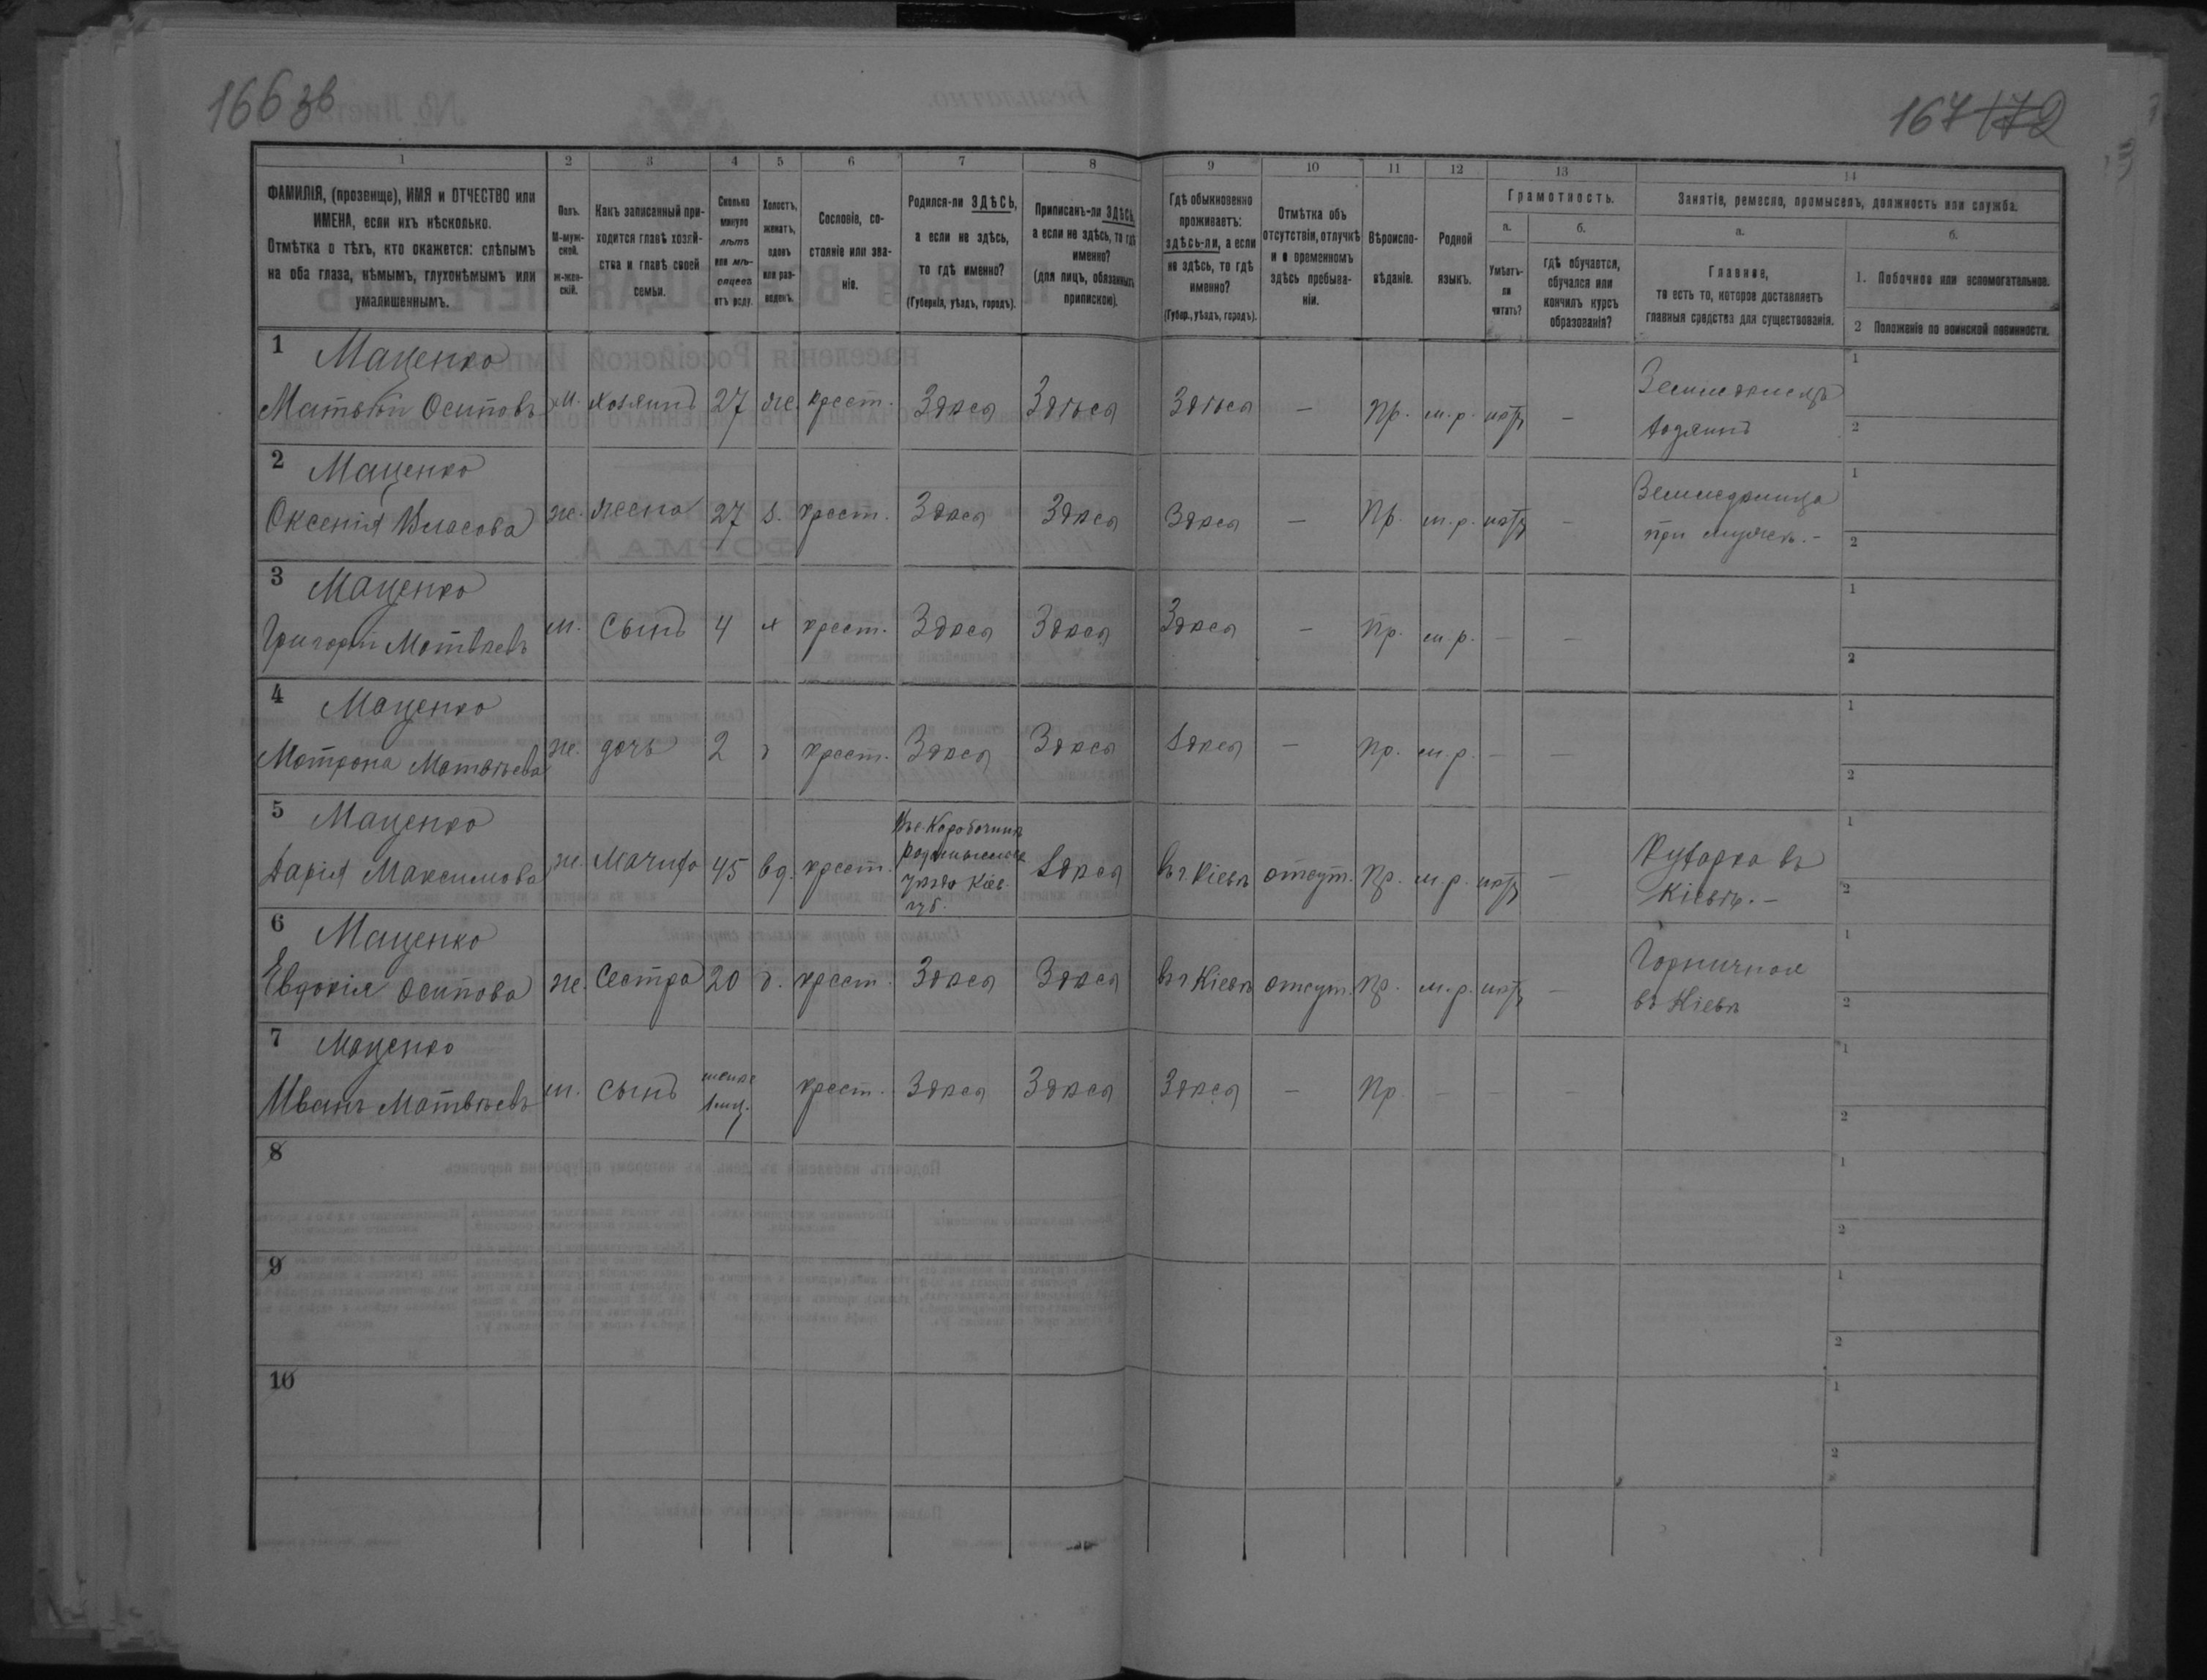 166 зв
167 172
1
2
3
4
5
6
7
8
9
10
11
12
13
14
ФАМИЛІЯ, (прозвище), ИМЯ и ОТЧЕСТВО или
ИМЕНА, если ихъ нѣсколько.
Отмѣтка о тѣхъ, кто окажется: слѣпымъ
на оба глаза, нѣмымъ, глухонѣмымъ или
умалишеннымъ.
Полъ.
М-муж-
ской.
ж-жен-
скій.
Какъ записанный при-
ходится главѣ хозяй-
ства и главѣ своей
семьи.
Сколько
минуло
лѣтъ
или мѣ-
сяцевъ
отъ роду.
Холостъ,
женатъ,
вдовъ
или раз-
веденъ.
Сословіе, со-
стояніе или зва-
ніе.
Родился-ли ЗДѢСЬ,
а если не здѣсь,
то гдѣ именно?
(Губернія, уѣздъ, городъ).
Приписанъ-ли ЗДѢСЬ,
а если не здѣсь, то гдѣ
именно?
(для лицъ, обязанныхъ
припискою).
Гдѣ обыкновенно
проживаетъ:
здѣсь-ли, а если
не здѣсь, то гдѣ
именно?
(Губер., уѣздъ, городъ).
Отмѣтка объ
отсутствіи, отлучкѣ
и о временномъ
здѣсь пребыва-
ніи.
Вѣроиспо-
вѣданіе.
Родной
языкъ.
Грамотность.
а.
Умѣетъ-
ли
читать?
б.
гдѣ обучается,
обучался или
кончилъ курсъ
образованія?
Занятіе, ремесло, промыселъ, должность или служба.
а.
Главное,
то есть то, которое доставляетъ
главныя средства для существованія.
б.
1. Побочное или вспомогательное.
2 Положеніе по воинской повинности.
1 Маценко
Матвѣй Осиповъ м. хозяинъ 27 же. крест. Здѣся Здѣся Здѣся — Пр. м.р. нѣтъ —
Земледѣлецъ
хозяинъ
1
2
2 Маценко
Оксенія Власова ж. жена 27 з. крест. Здѣся Здѣся Здѣся — Пр. м.р. нѣтъ —
при мужѣ. —
1
2
3 Маценко
Григорій Матвѣевъ м. сынъ 4 х крест. Здѣся Здѣся Здѣся — Пр. м.р. — —
1
2
4 Маценко
Мотрона Матвѣева ж. дочь 2 д крест. Здѣся Здѣся Здѣся — Пр. м.р. — —
1
2
5 Маценко
Дарія Максимова ж. Мачиха 45 вд. крест.
уѣзда Кіев.
губ.
Здѣся въ г. Кіевѣ отсут. Пр. м.р. нѣтъ —
Кухарка въ
Кіевѣ. —
1
2
6 Маценко
Евдокія Осипова ж. Сестра 20 д. крест. Здѣся Здѣся въ г Кіевѣ отсут. Пр. м.р. нѣтъ —
Горничная
въ Кіевѣ
1
2
7 Маценко
Иванъ Матвѣевъ м. сынъ
менѣе
1 мѣц.
крест. Здѣся Здѣся Здѣся — Пр. — — —
1
2
8
1
2
9
1
2
10
1
2